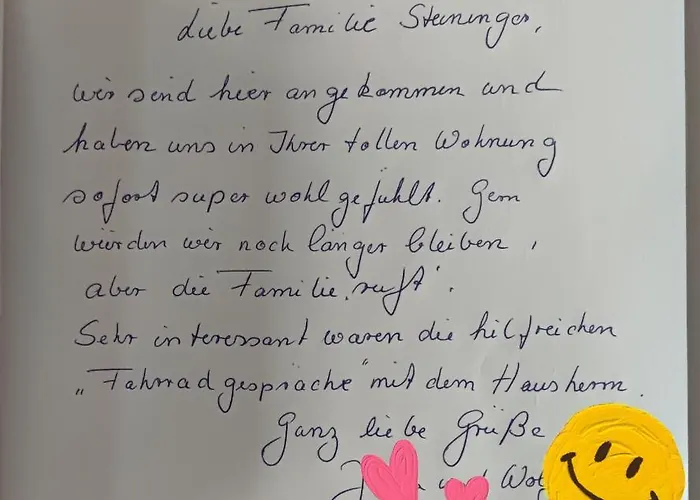 Liebe Familie Steininger,
wir sind hier angekommen und
haben uns in Ihrer tollen Wohnung
sofort super wohl gefühlt. Gern
würden wir noch länger bleiben,
aber die Familie „ruft“.
Sehr interessant waren die hilfreichen
„Fahrradgespräche“ mit dem Hausherrn.
Ganz liebe Grüße